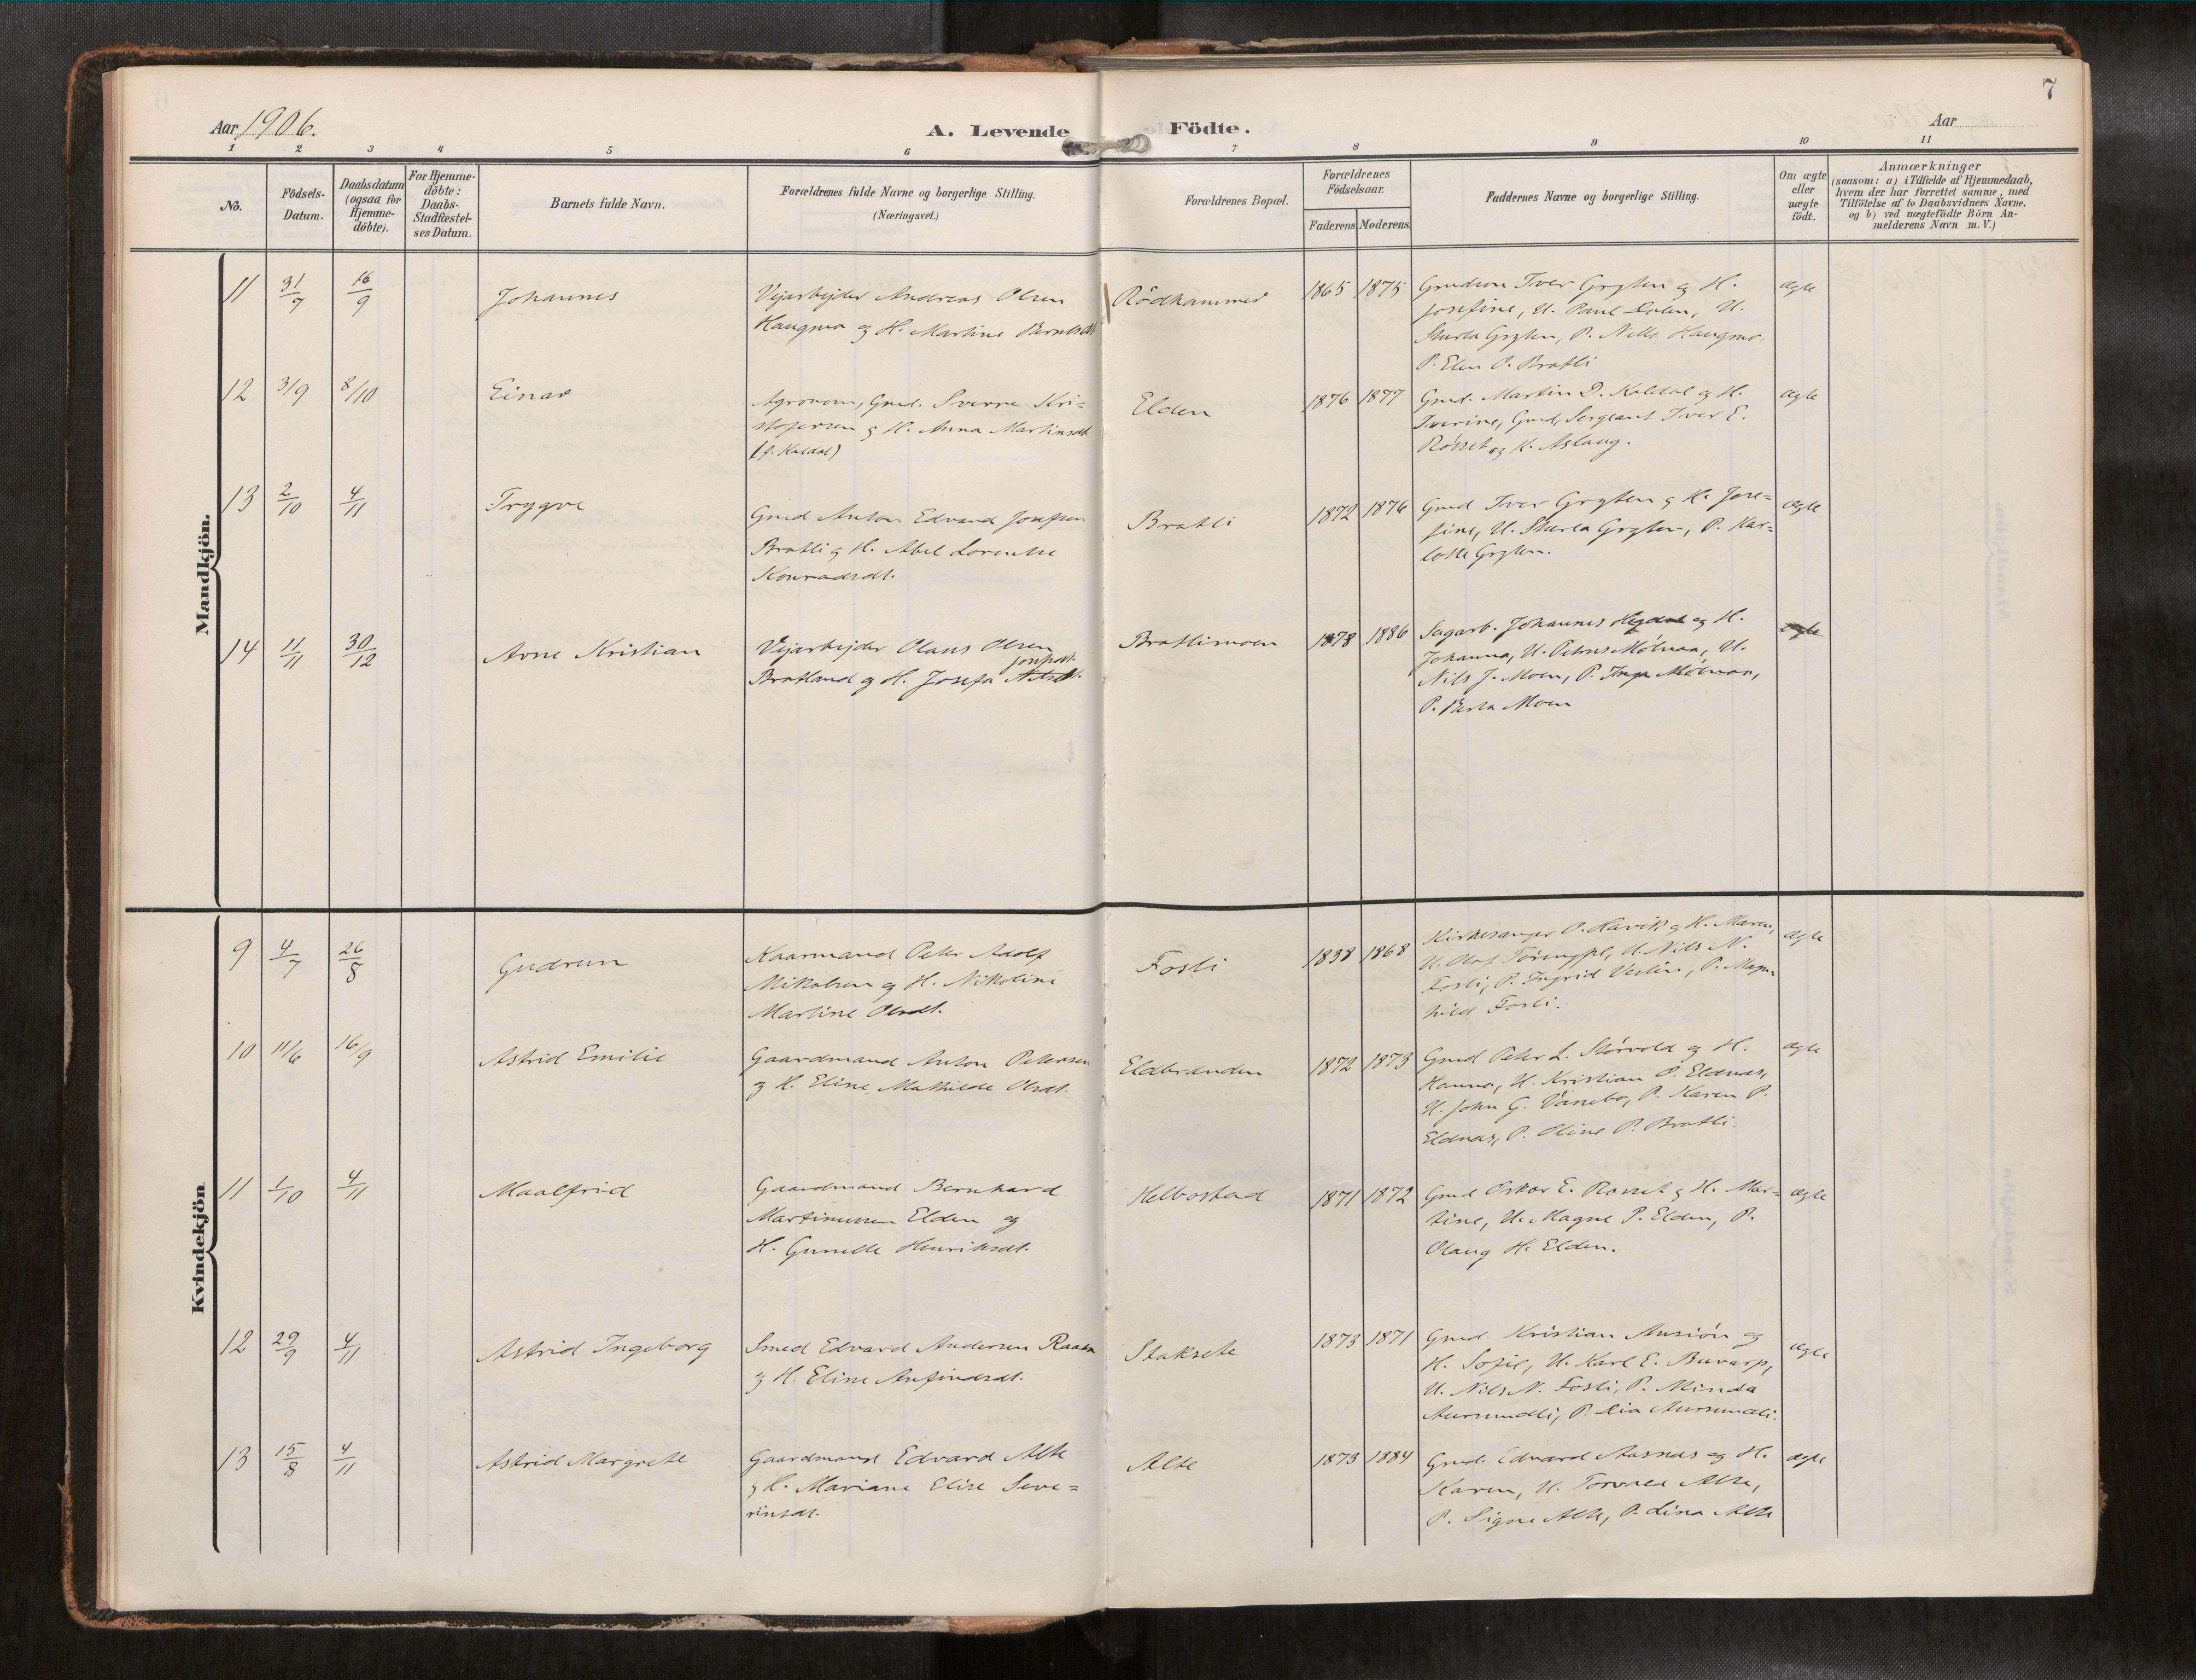 7
Aar 1906.
A. Levende Födte.
Aar
1 2 3 4 5 6 7 8 9 10 11
No.
Födsels-Datum.
Daabsdatum (ogsaa for Hjemme-döbte).
For Hjemme-döbte: Daabs-Stadfæstel-ses Datum.
Barnets fulde Navn.
Forældrenes fulde Navne og borgerlige Stilling.
(Næringsvei.)
Forældrenes Bopæl.
Forældrenes Födselsaar.
Faderens. Moderens.
Faddernes Navne og borgerlige Stilling.
Om ægte eller uægte födt.
Anmærkninger
(saasom: a) i Tilfælde af Hjemmedaab,
hvem der har forrettet samme, med
Tilföielse af to Daabsvidners Navne,
og b) ved uægtefödte Börn An-
melderens Navn m. V.)
Mandkjön.
11 31/7 16/9 Johannes
Vejarbejder Andreas Olsen
Haugmo og H. Martine Berntsdt
Rödhammer 1865 1875
Gmdmn Iver Grythen og H.
Josefine, U. Paul Elden, U.
Sturla Grythen, P. Nella Haugmo
P. Elen O. Bratli
ægte
12 3/9 8/10 Einar
Agronom, Gmd. Sverre Kri-
stofersen og H. Anna Martinsdt
(f. Kaldal)
Elden 1876 1877
Gmd. Martin D. Kaldal og H.
Iverine, Gmd, Sergeant Iver E.
Rosset og H. Aslaug.
ægte
13 2/10 4/11 Trygve
Gmd Anton Edvard Josefsen
Bratli og H. Abel Lorentse
Konradsdt.
Bratli 1872 1876
Gmd Iver Grythen og H. Jose-
fine, U. Sturla Grythen, P. Kar-
lotte Grythen.
ægte
14 11/11 30/12 Arne Kristian
Vejarbejder Olaus Olsen
Josefsdt.
Bratland og H. Josefa
Bratlimoen 1878 1886
Sagarb. Johannes Hegdal og H.
Johanna, U. Petrus Mölnaa, U.
Nils J. Moen, P. Inga Mölnaa,
P. Berta Moen
ægte
Kvindekjön
9 4/7 26/8 Gudrun
Kaarmand Peter Adolf
Mikalsen og H. Nikoline
Martine Olsdt.
Fosli 1838 1868
Kirkesanger O. Havik og H. Maren,
U. Olaf, U. Nils N.
Fosli, P. Ingrid, P. Magn-
hild Fosli.
ægte
10 11/6 16/9 Astrid Emilie
Gaardmand Anton Petersen
og H. Eline Mathilde Olsdt.
Eldbranden 1872 1873
Gmd Peter L. Störvold og H.
Hanna, U. Kristian P. Eldnæs,
U. John G. Vannebo, P. Karen P.
Eldnæs, P. Oline P. Bratli.
ægte
11 1/10 4/11 Maalfrid
Gaardmand Bernhard
Martinussen Elden og
H. Gunelle Henriksdt.
Helbostad 1871 1872
Gmd Oskar E. Rosset og H. Mar-
tine, U. Magne P. Elden, P.
Olaug H. Elden.
ægte
12 29/9 4/11 Astrid Ingeborg
Smed Edvard Andersen Raaen
og H. Eline Anfindsdt.
Staksete 1873 1871
Gmd. Kristian Ansión og
H. Sofie, U. Karl E. Buvarp,
U. Nils N. Fosli, P. Minda
Aursundli, P. Lia Aursundli.
ægte
13 15/8 4/11 Astrid Margrete
Gaardmand Edvard Alte
og H. Mariane Elise Seve-
rinsdt.
Alte 1873 1884
Gmd. Edvard Aasnæs og H.
Karen, U. Torvald Alte,
P. Signe Alte, P. Lina Alte
ægte